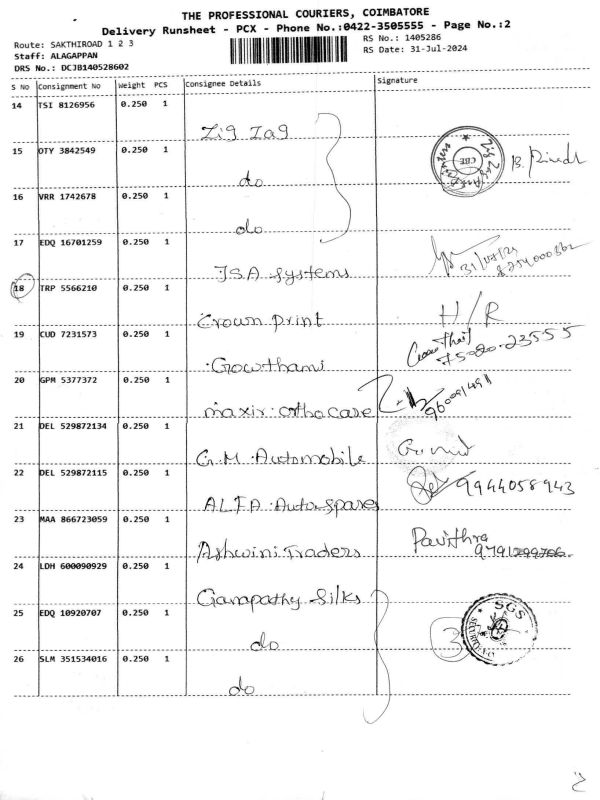 THE PROFESSIONAL COURIERS, COIMBATORE
Delivery Runsheet - PCX - Phone No.:0422-3505555 - Page No.:2
Route: SAKTHIROAD 1 2 3
RS No.: 1405286
Staff: ALAGAPPAN
RS Date: 31-Jul-2024
DRS No.: DCJB140528602
S No Consignment No Weight PCS Consignee Details Signature
14 TSI 8126956 0.250 1
Zig Zag
15 OTY 3842549 0.250 1
do
CBE
B.
16 VRR 1742678 0.250 1
do
17 EDQ 16701259 0.250 1
JSA Systems
31/07/24
18 TRP 5566210 0.250 1
Crown print
H/R
19 CUD 7231573 0.250 1
Gowthami
20 GPM 5377372 0.250 1
maxir orthocare
21 DEL 529872134 0.250 1
G.M. Automobile
22 DEL 529872115 0.250 1
ALFA Autospares
9944058943
23 MAA 866723059 0.250 1
Ashwini Traders
Pavithra
24 LDH 600090929 0.250 1
Ganapathy Silks
25 EDQ 10920707 0.250 1
do
3
SGS
SECURITY
26 SLM 351534016 0.250 1
do
2